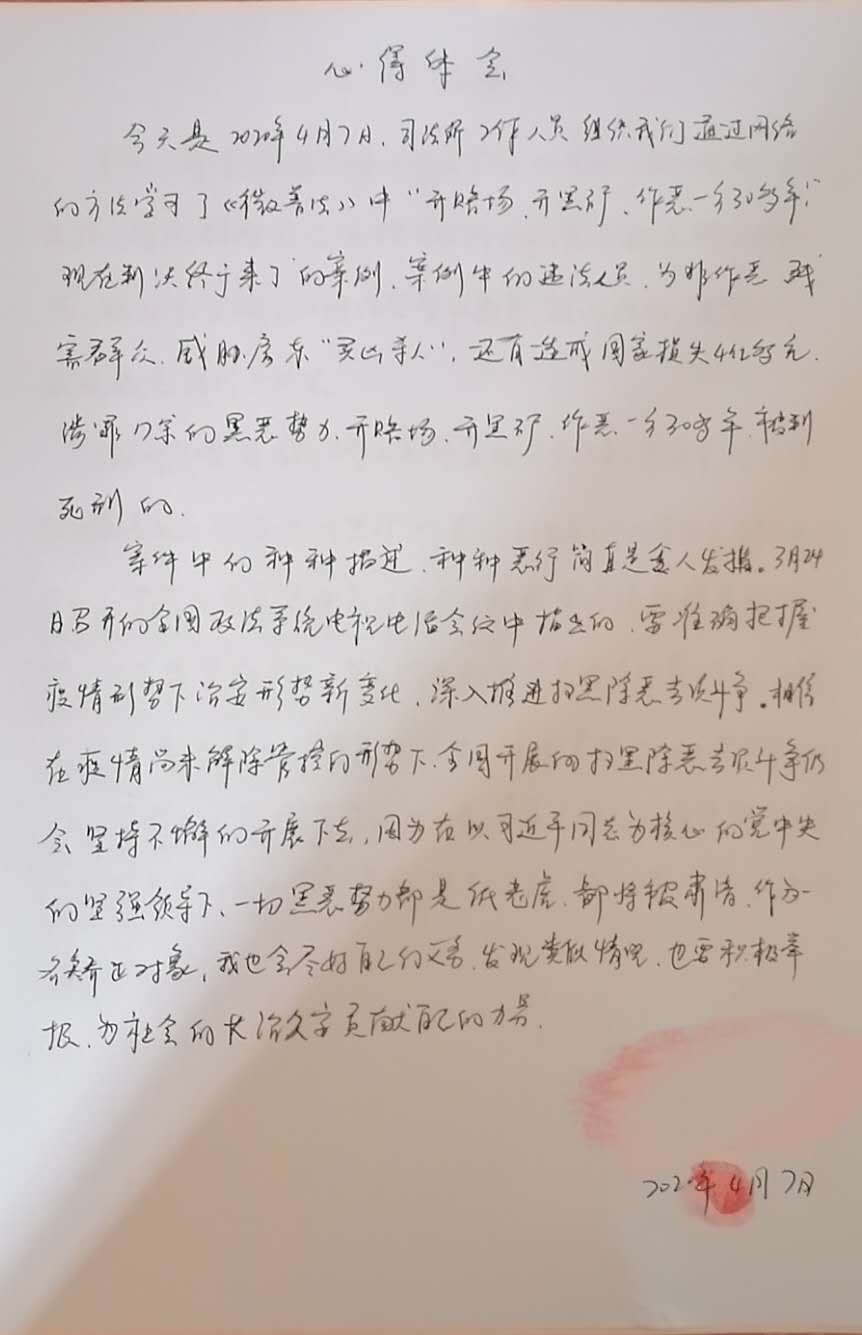 心得体会
今天是2020年4月7日，司法所工作人员组织我们通过网络
的方法学习了《微普法》中“开赌场、开黑矿、作恶一方30多年！”
现在判决终于来了的案例，案例中的违法人员，为非作恶 残
害群众、威胁房东“买凶杀人”，还有造成国家损失4亿多元，
涉罪17宗的黑恶势力、开赌场、开黑矿、作恶一方30多年，被判
死刑的。
案件中的种种描述，种种恶行简直是令人发指。3月24
日召开的全国政法系统电视电话会议中指出的，要准确把握
疫情形势下治安形势新变化，深入推进扫黑除恶专项斗争。相信
在疫情尚未解除管控的形势下，全国开展的扫黑除恶专项斗争仍
会坚持不懈的开展下去，因为在以习近平同志为核心的党中央
的坚强领导下、一切黑恶势力都是纸老虎，都将被肃清，作为一
名矫正对象，我也会尽好自己的义务，发现类似情况，也要积极举
报，为社会的长治久安贡献自己的力量。
2020年4月7日